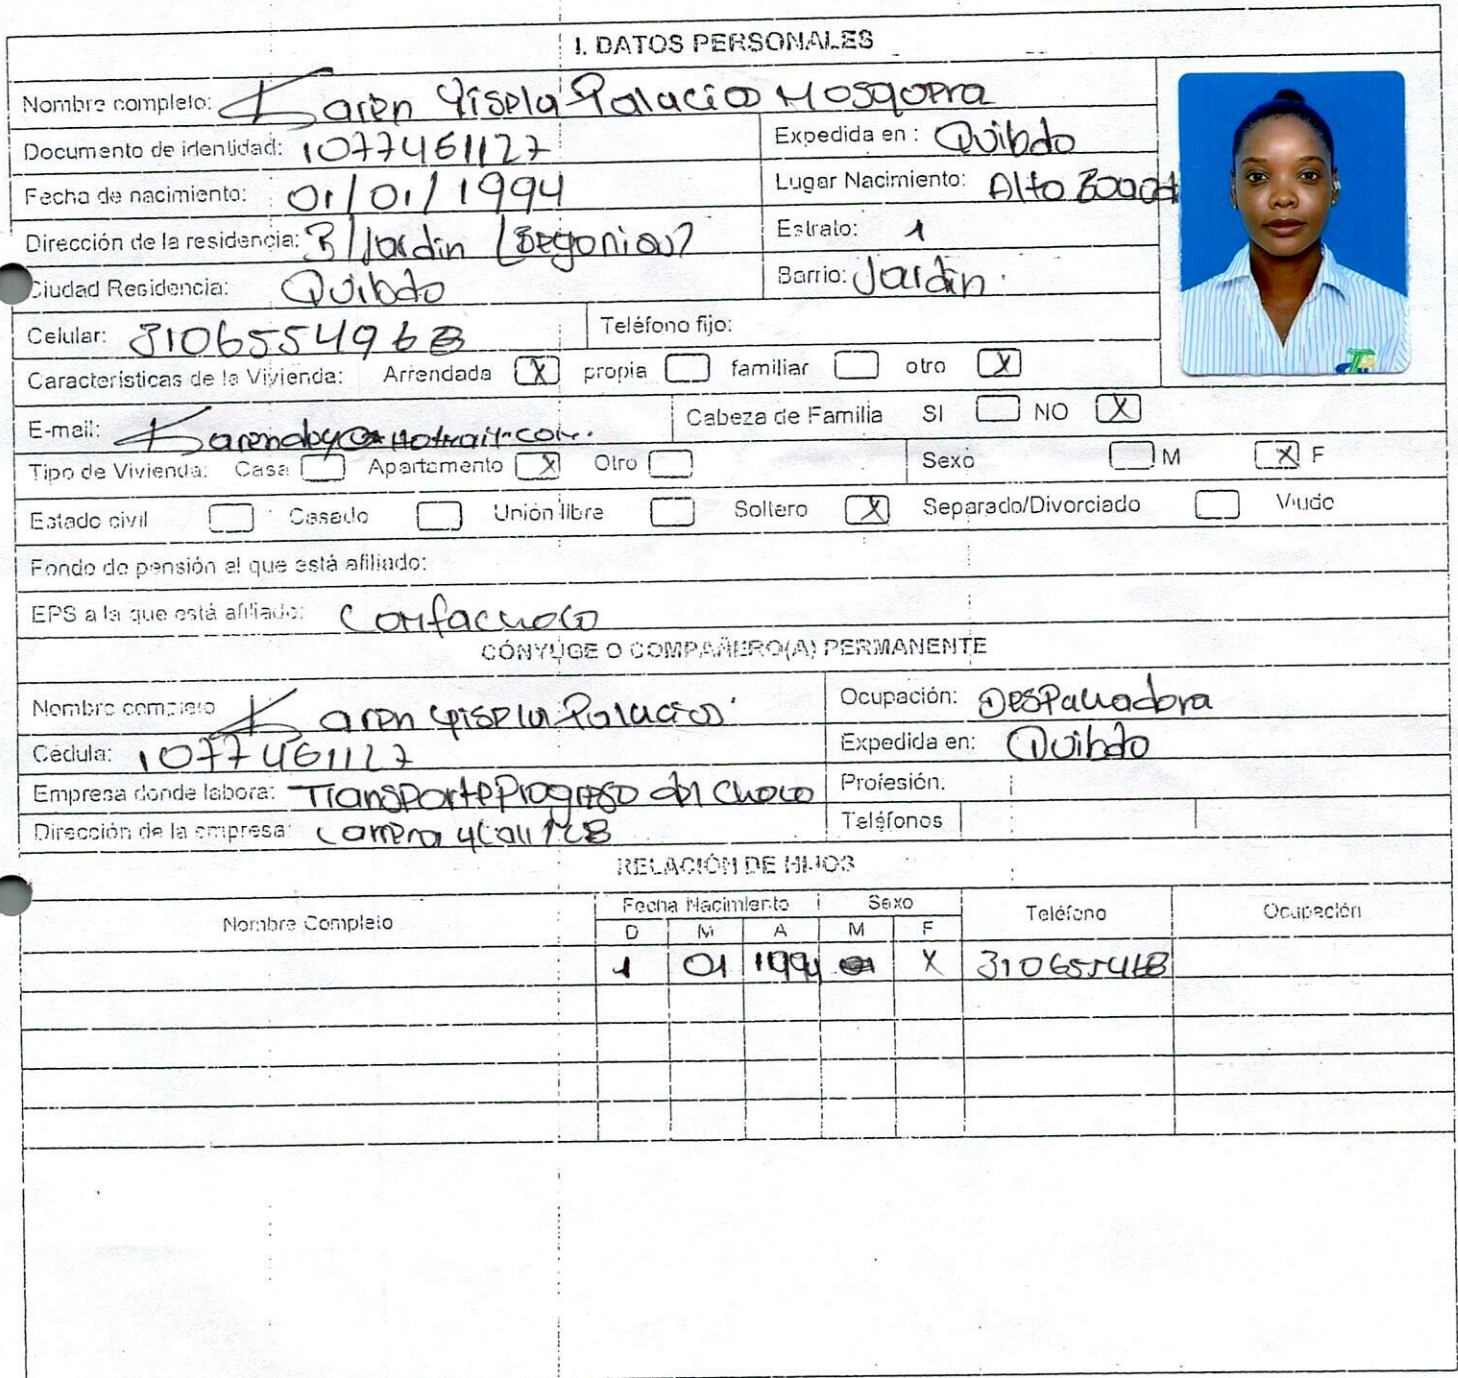 I. DATOS PERSONALES
Nombre completo: Karen Yisela Palacio Mosquera
Documento de identidad: 1077461127 Expedida en: Quibdo
Fecha de nacimiento: 01/01/1994 Lugar Nacimiento: Alto
Dirección de la residencia: B/Jardin (Begonias) Estrato: 1
Ciudad Residencia: Quibdo Barrio: Jardin.
Celular: Teléfono fijo:
Características de la Vivienda: Arrendada X propia familiar otro X
E-mail: Cabeza de Familia SI NO X
Tipo de Vivienda: Casa Apartamento X Otro Sexo M X F
Estado civil Casado Unión libre Soltero X Separado/Divorciado Viudo
Fondo de pensión al que está afiliado:
EPS a la que está afiliado: Comfachoco
CÓNYUGE O COMPAÑERO(A) PERMANENTE
Nombre completo Karen Yisela Palacios Ocupación: Despachadora
Cédula: 1077461127 Expedida en: Quibdo
Empresa donde labora: Transporte Progreso del Choco Profesión.
Dirección de la empresa: Teléfonos
RELACIÓN DE HIJOS
Nombre Completo Fecha Nacimiento Sexo Teléfono Ocupación
D M A M F
1 01 1994 X